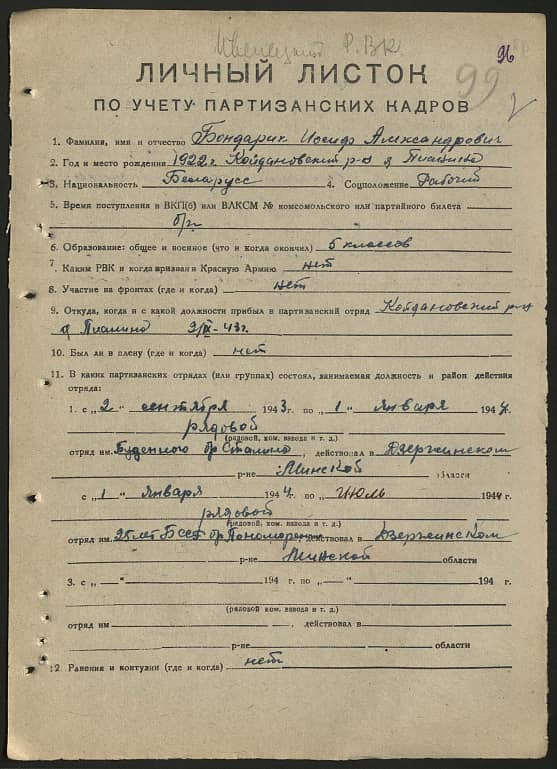 Р.ВК.
96
99
ЛИЧНЫЙ ЛИСТОК
ПО УЧЕТУ ПАРТИЗАНСКИХ КАДРОВ
1. Фамилия, имя и отчество Бондарик Иосиф Александрович
2. Год и место рождения 1922г. Койдановский р-н д
3. Национальность Беларусс 4. Соцположение Рабочий
5. Время поступления в ВКП(б) или ВЛКСМ № комсомольского или партийного билета
б/п
6. Образование: общее и военное (что и когда окончил) 5 классов
7. Каким РВК и когда призван в Красную Армию нет
8. Участие на фронтах (где и когда) нет
9. Откуда, когда и с какой должности прибыл в партизанский отряд Койдановский р-н
д 2/IX-43г.
10. Был ли в плену (где и когда) нет
11. В каких партизанских отрядах (или группах) состоял, занимаемая должность и район действия
отряда:
1. с „2" сентября 1943г. по „1" января 1944г.
рядовой
(рядовой, ком. взвода и т. д.)
отряд им. Буденного бр Сталина, действовал в Дзержинском
р-не Минской области
с „1" января 1944г. по „ " Июль 1944 г.
рядовой
(рядовой, ком. взвода и т. д.)
отряд им. 25 лет БССР бр Пономаренко действовал в Дзержинском
р-не Минской области
3. с „ — " 194 г. по „ — " 194 г.
(рядовой, ком. взвода и т. д.)
отряд им , действовал в
р-не области
12. Ранения и контузии (где и когда) нет